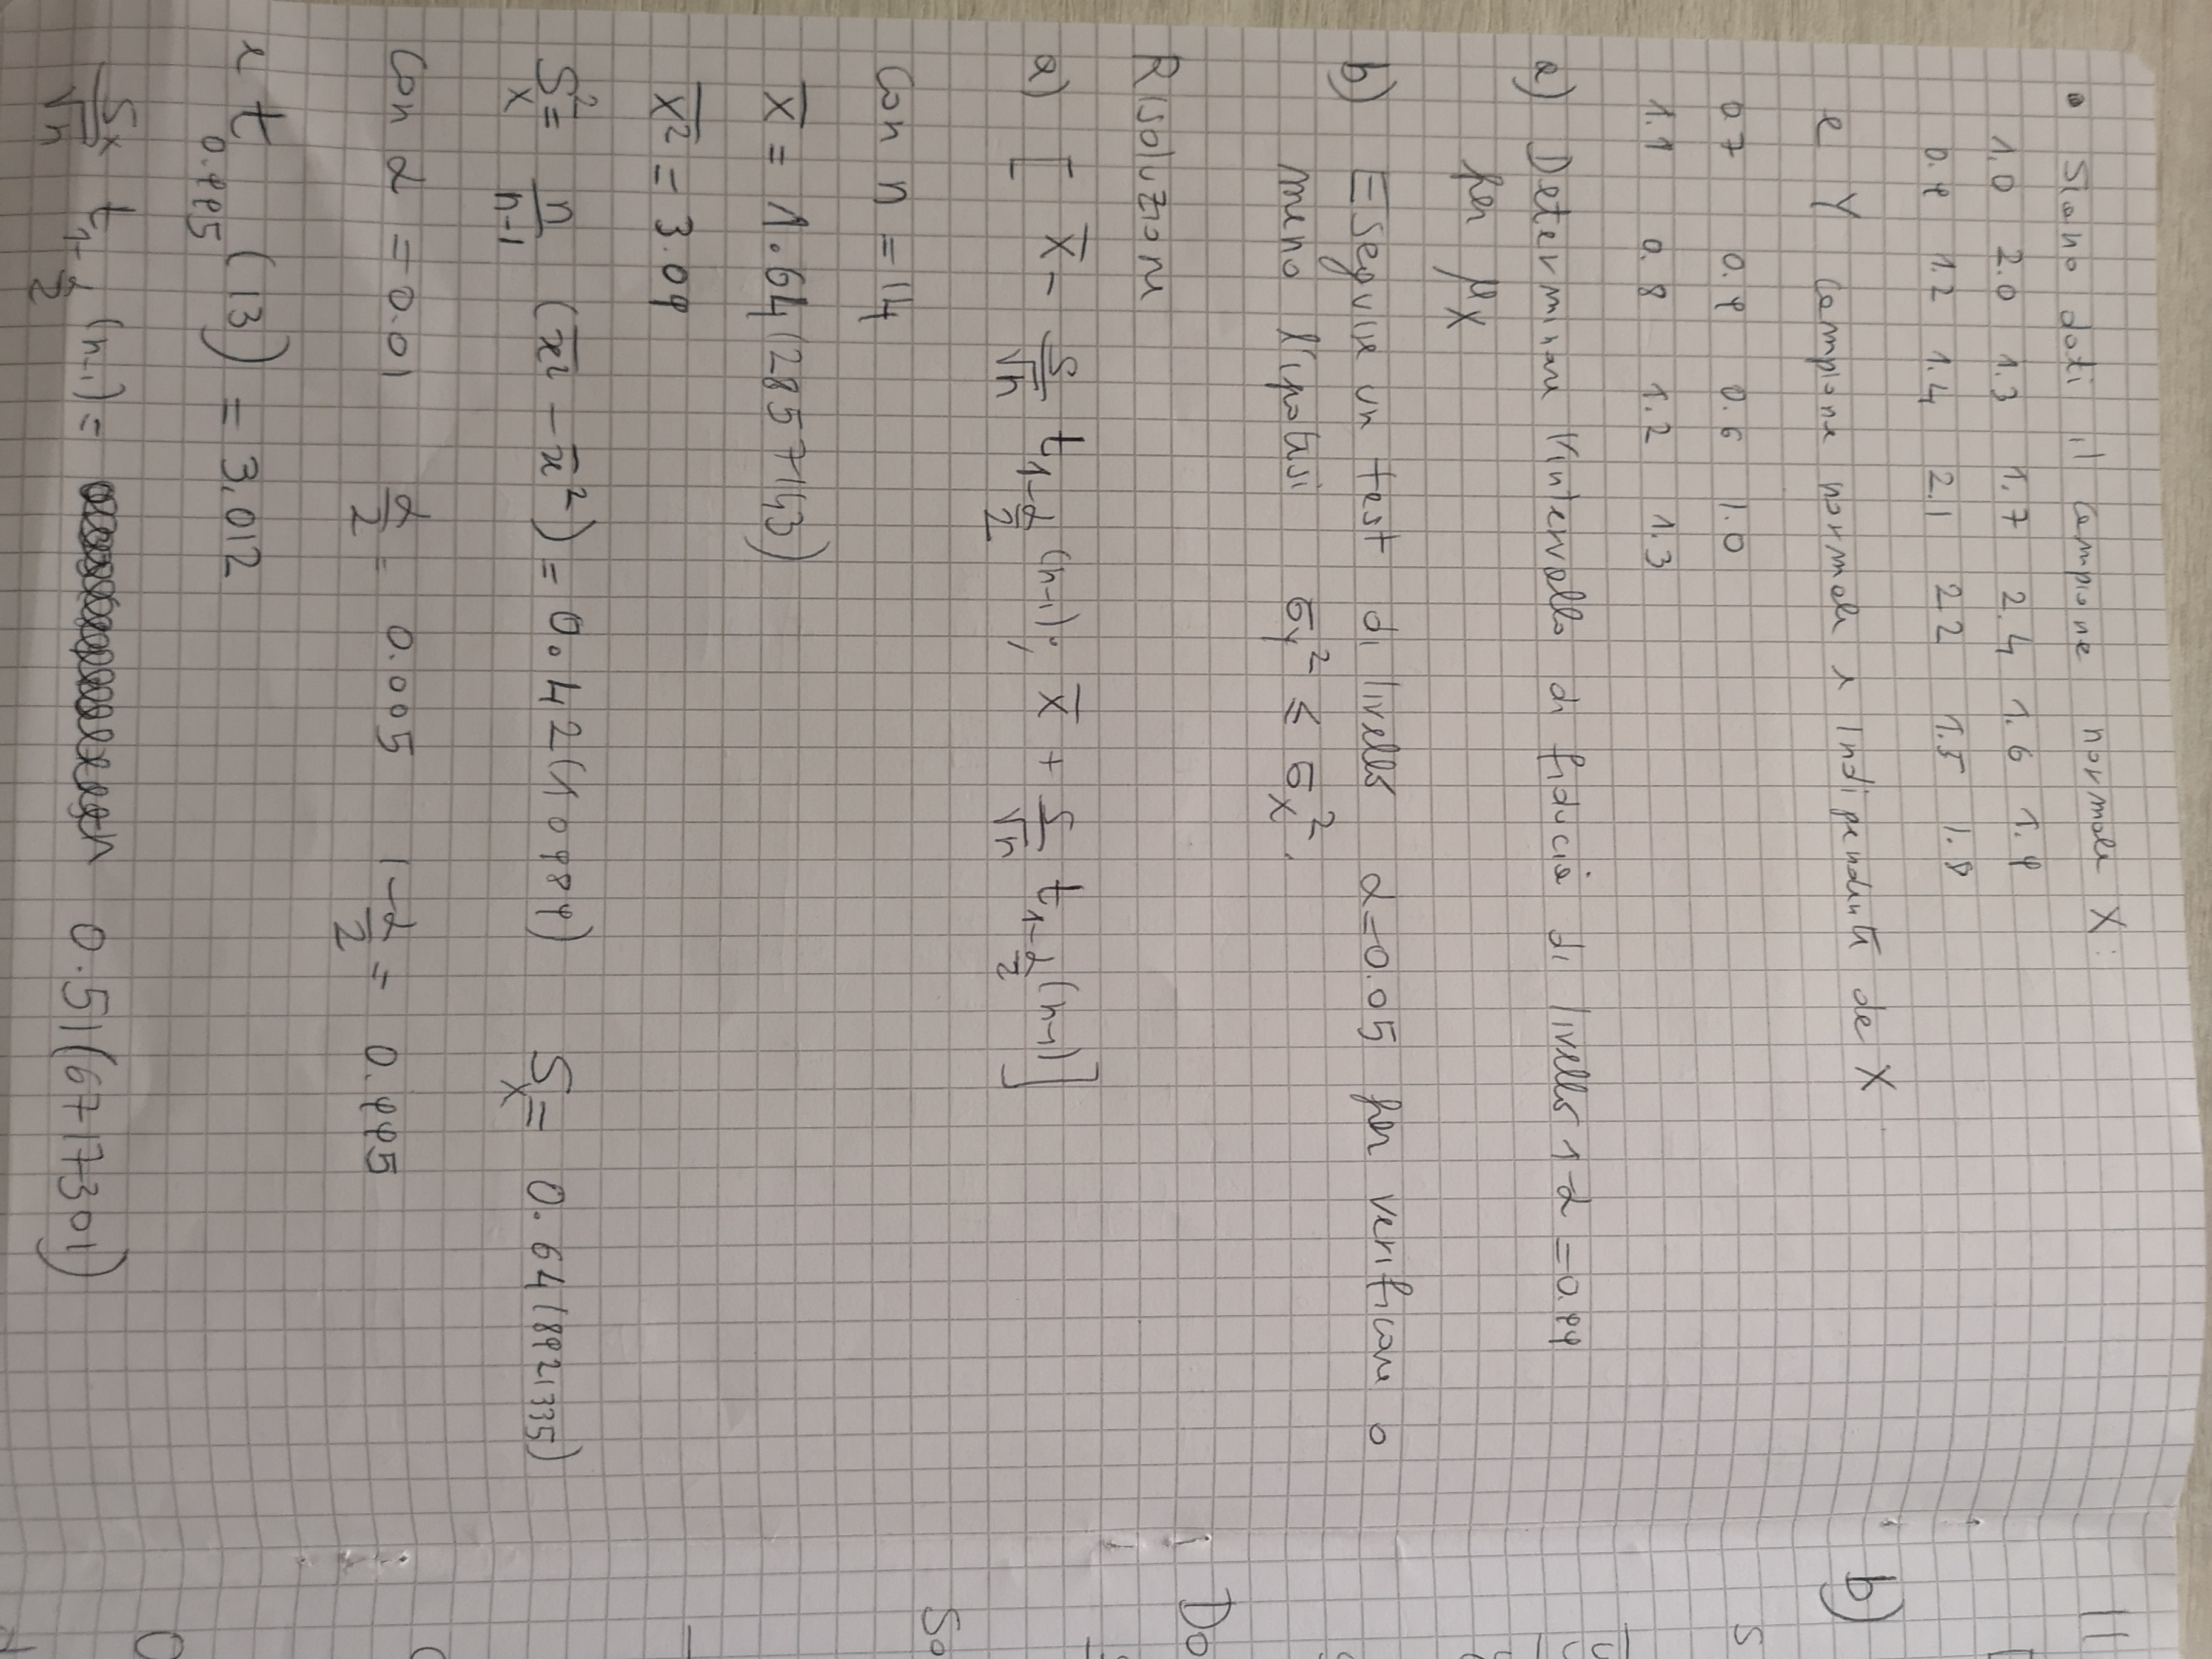 • Siano dati il campione normale X:
1.0 2.0 1.3 1.7 2.4 1.6 1.9
0.9 1.2 1.4 2.1 2.2 1.5 1.8
e Y campione normale e indipendente da X
0.7 0.9 0.6 1.0
1.1 0.8 1.2 1.3
a) Determinare l'intervallo di fiducia di livello 1-α = 0.99
per μ_X
b) Eseguire un test di livello α=0.05 per verificare o
meno l'ipotesi σ_Y² ≤ σ_X².
Risoluzione
a) [ x̄ - S/√n t_{1-α/2} (n-1); x̄ + S/√n t_{1-α/2} (n-1) ]
Con n = 14
x̄ = 1.64(2857143)
x̄² = 3.09
S²_X = n/(n-1) (x̄² - x̄²) = 0.42(10989) S_X = 0.64(8921335)
Con α = 0.01 α/2 = 0.005 1-α/2 = 0.995
e t_{0.995} (13) = 3.012
S_X/√n t_{1-α/2} (n-1) = 0.51(6717301)
11
b)
S
Do
So